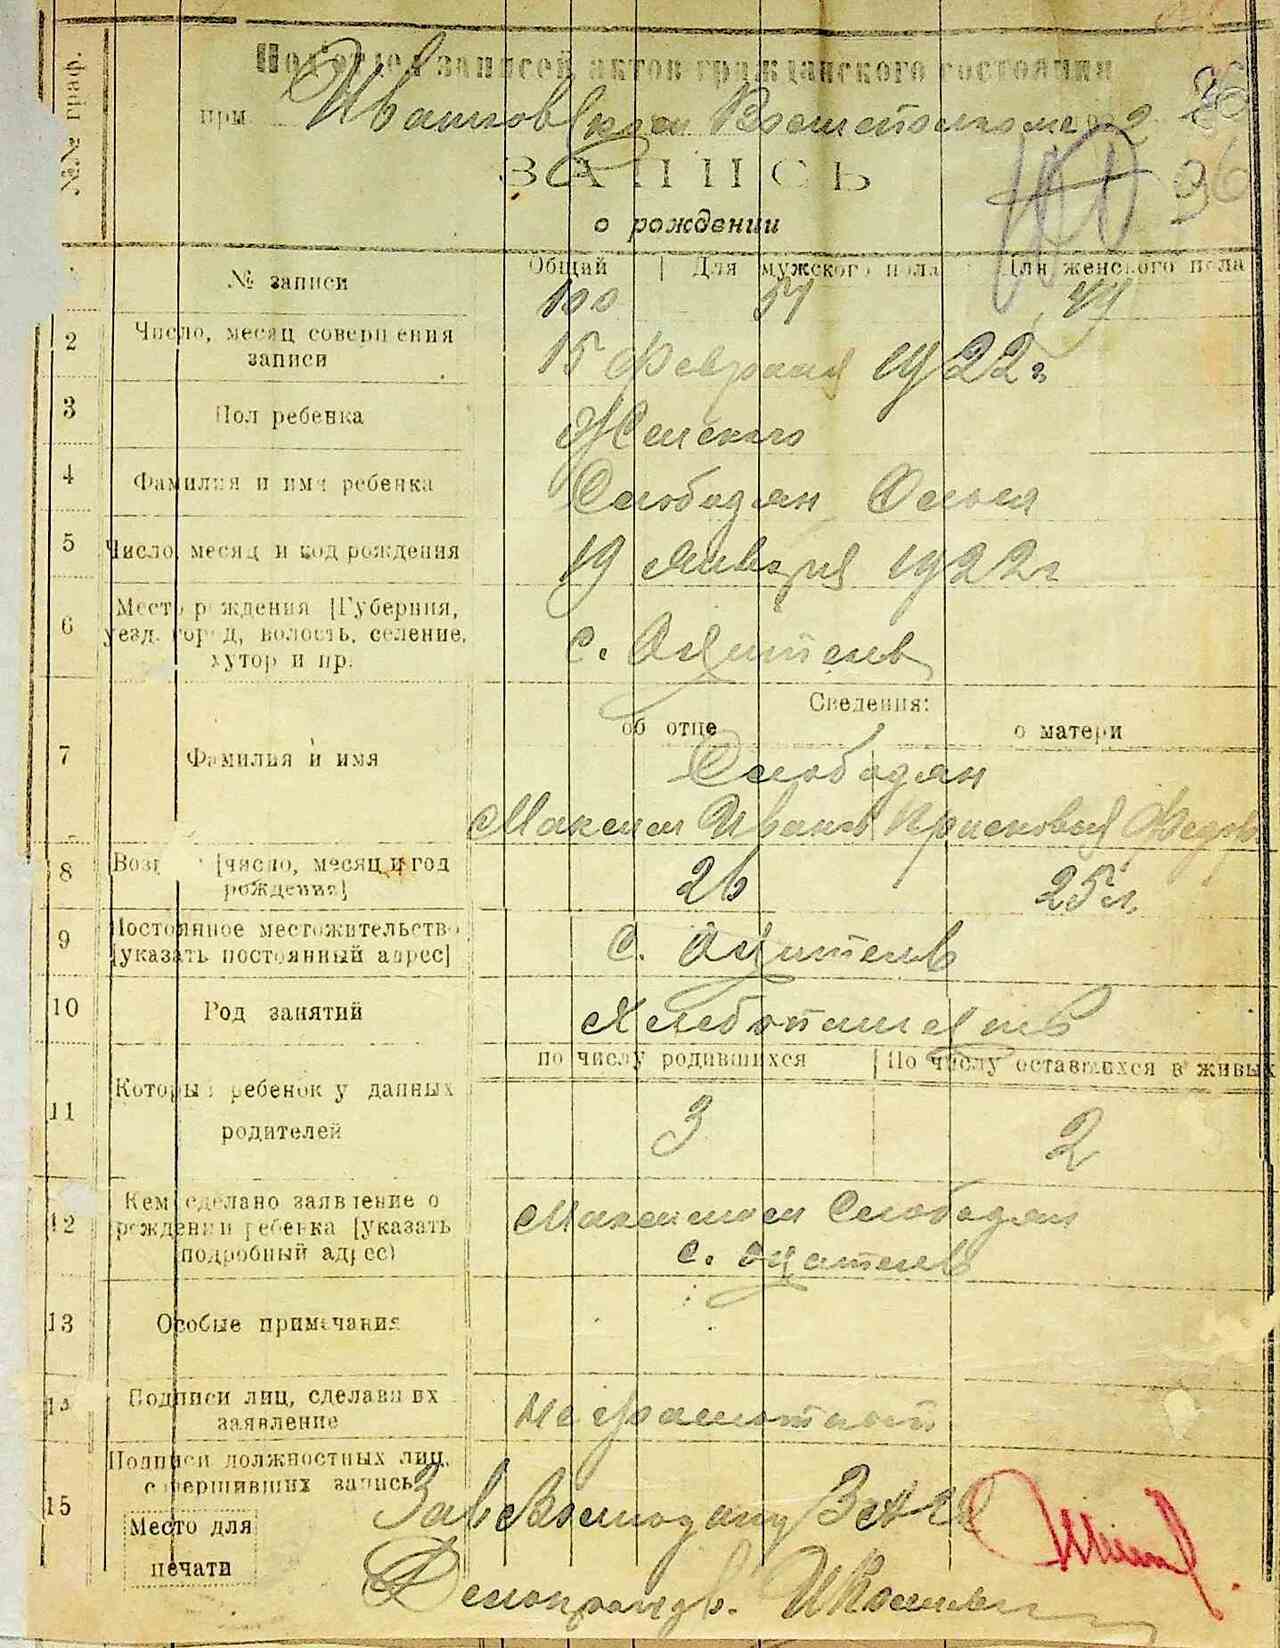 №№ граф.
Подотдел записей актов гражданского состояния
при
26
ЗАПИСЬ
36
о рождении
№ записи
Общий | Для мужского пола | Для женского пола
100 57
2 Число, месяц совершения записи
15 Февраля 1922 г.
3 Пол ребенка
Женского
4 Фамилия и имя ребенка
Слободян Ольга
5 Число, месяц и год рождения
19 Января 1922 г
6 Место рождения [Губерния,
уезд, город, волость, селение,
хутор и пр.
с.
Сведения:
об отце о матери
7 Фамилия и имя
Слободян
Максим Иванов Присковья Федор
8 [число, месяц и год
рождения]
26 25 л.
9 Постоянное местожительство
[указать постоянный адрес]
с.
10 Род занятий
Хлебопашец
по числу родившихся | По числу оставшихся в живых
11 Который ребенок у данных
родителей
3 2
12 Кем сделано заявление о
рождении ребенка [указать
подробный адрес)
Максимом Слободян
с.
13 Особые примечания
14 Подписи лиц, сделавших
заявление
Не грамотный
15 Подписи должностных лиц,
совершивших запись
Место для
печати